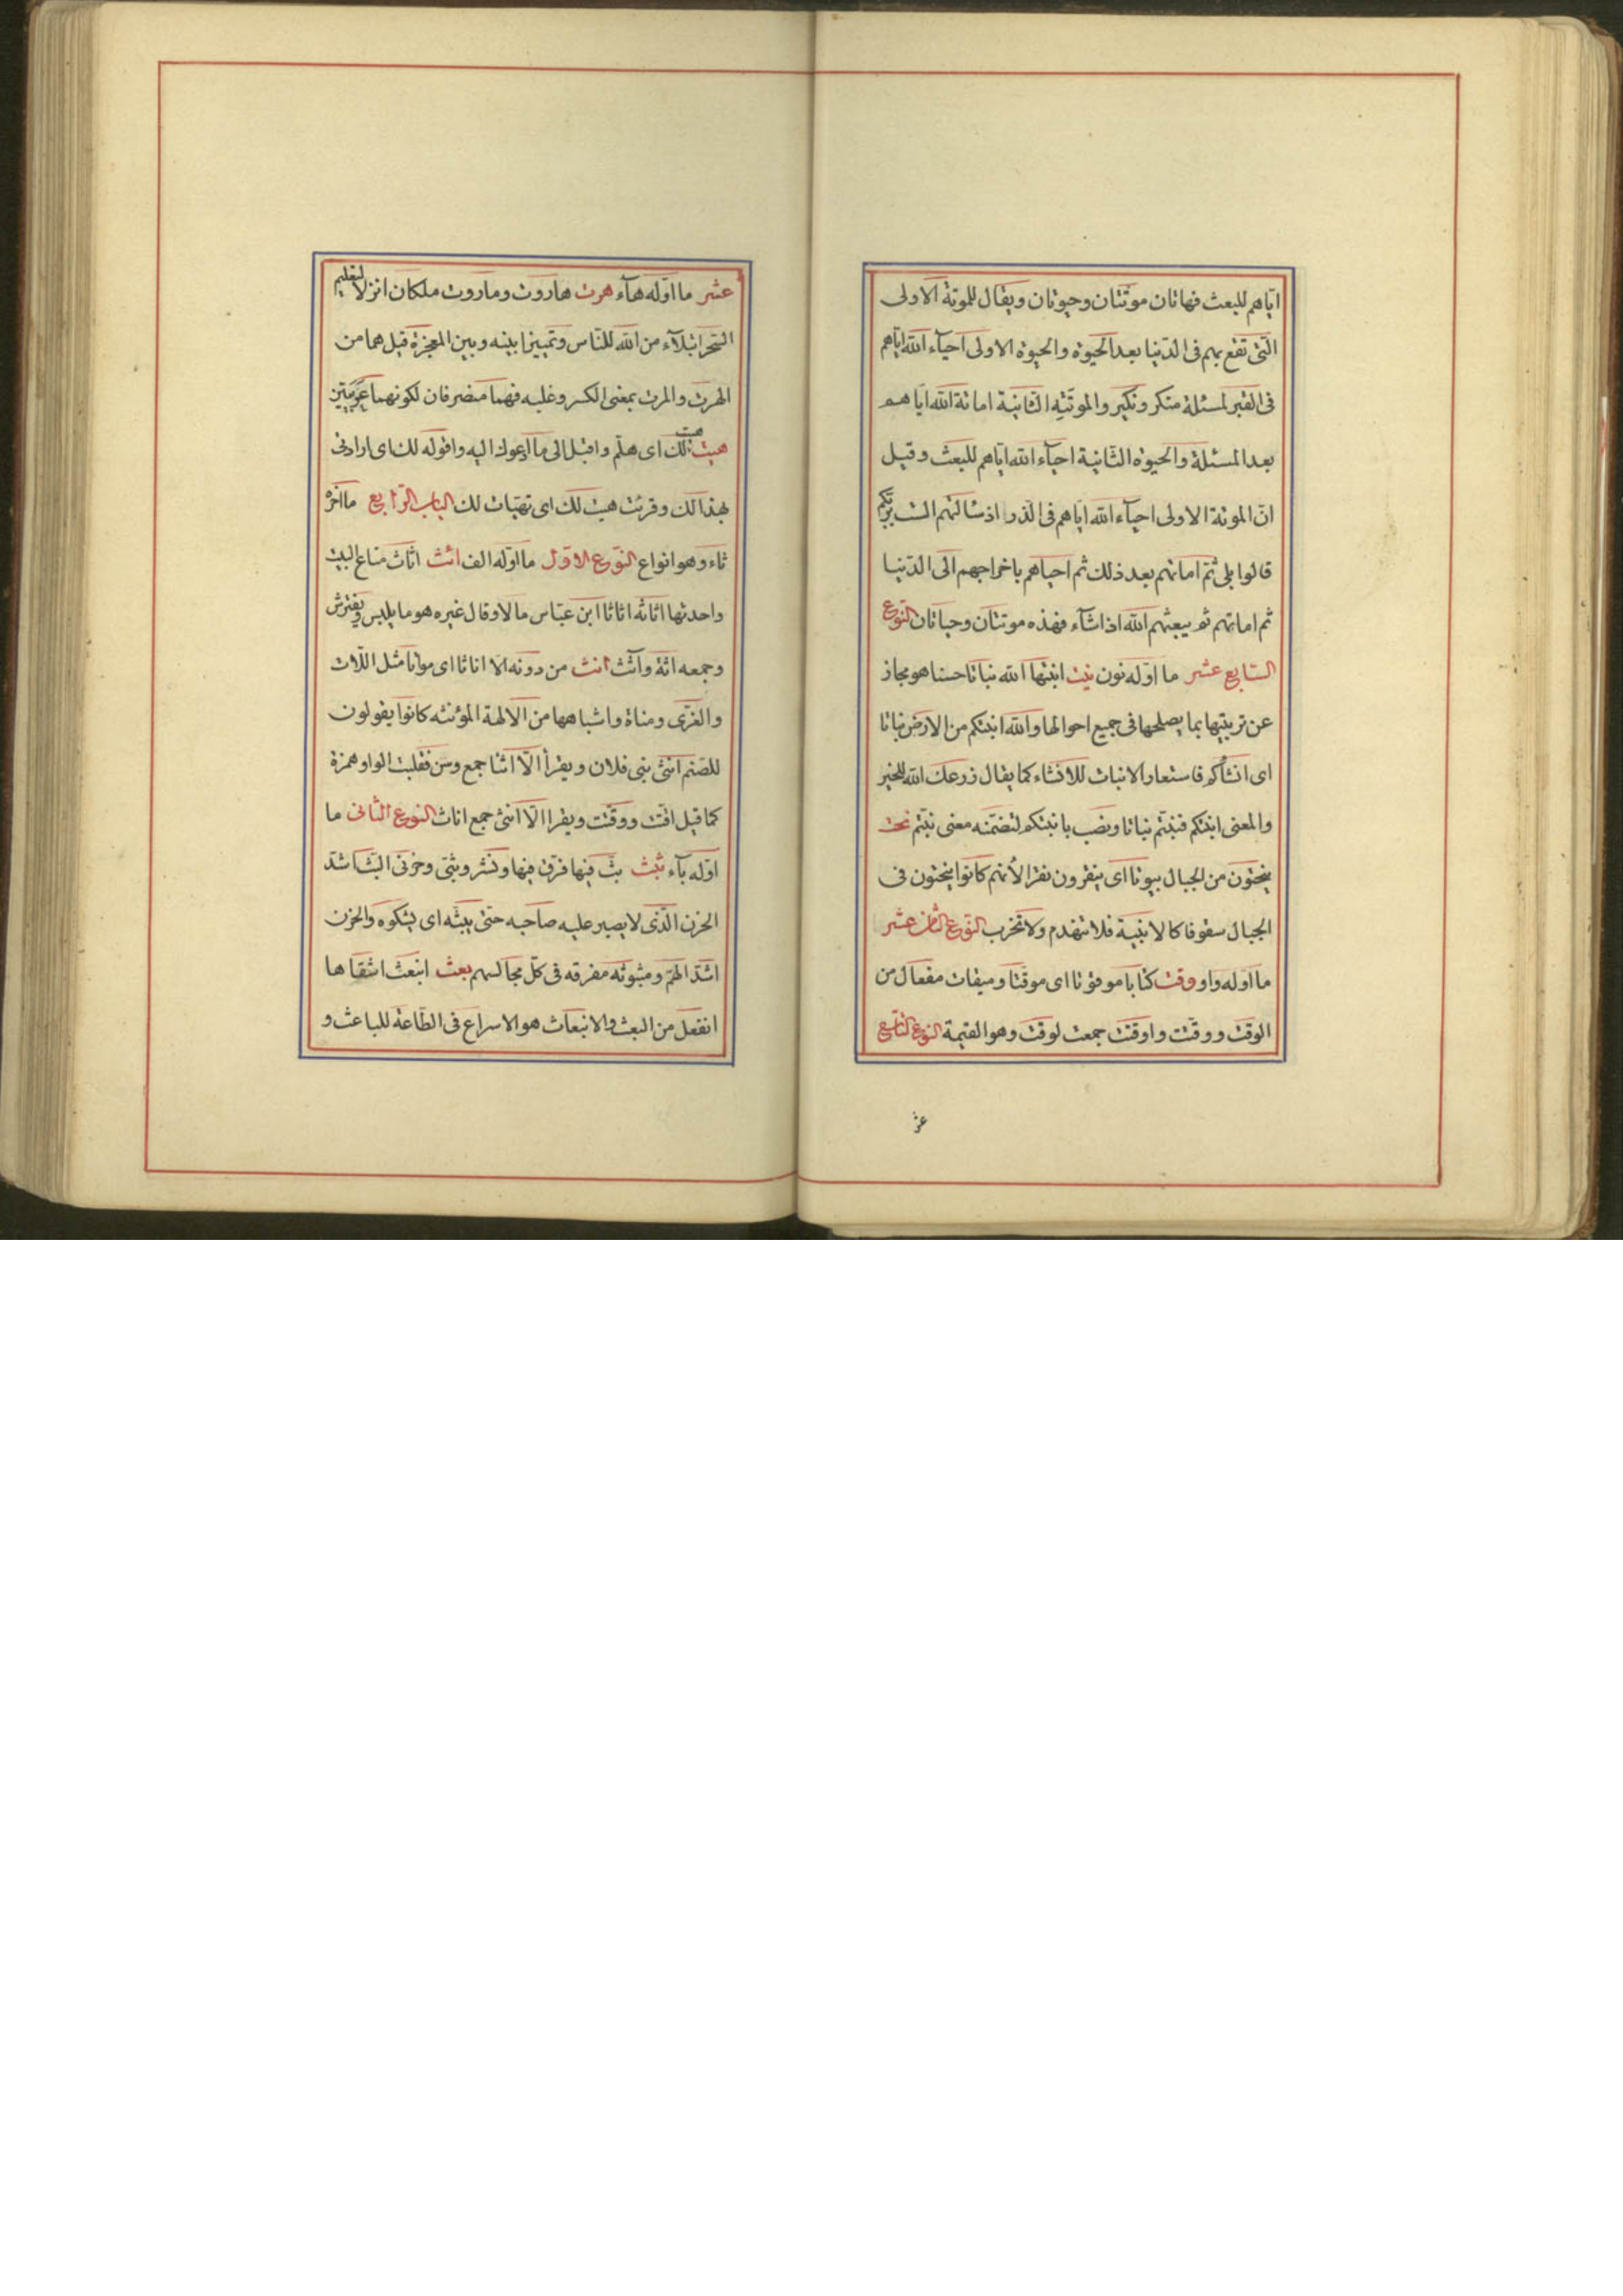 اياهم للبعث فهاتان موتتان وحيوتان ويقال للموتة الاولى
الّتى تقع بهم فى الدّنيا بعد الحيوة والحيوة الاولى احيآء الله اياهم
فى القبر لمسئلة منكر ونكير والموتتة الثّانية اماتة الله اياهم
بعد المسئلة والحيوة الثّانية احيآء الله اياهم للبعث وقيل
انّ الموتة الاولى احيآء الله اياهم فى الذّر اذ سألتهم الست بربّكم
قالوا بلى ثمّ اماتهم بعد ذلك ثم احياهم باخراجهم الى الدّنيا
ثم اماتهم ثم يبعثهم الله اذا شآء فهذه موتتان وحياتان النّوع
السّابع عشر ما اوّله نون نبت انبتها الله نباتا حسنا هو مجاز
عن تربيتها بما يصلحها فى جميع احوالها والله انبتكم من الارض نباتا
اى انشأكم فاستعار الانبات للانشاء كما يقال زرعك الله للخير
والمعنى انبتكم فنبتّم نباتا ونصب بانبتكم لتضمّنه معنى نبتّم نحت
ينحتون من الجبال بيوتا اى ينقرون نقرا لأنهم كانوا ينحتون فى
الجبال سقوفا كالابنية فلا تنهدم ولا تخرب النّوع الثّامن عشر
ما اوله واو وقت كتابا موقوتا اى موقّتا وميقات مفعال من
الوقت ووقّتت واوقتت جمعت لوقت وهو القيمة النوع التّاسع
عشر
عشر ما اوّله هآء هرت هاروت وماروت ملكان انزلا لتعليم
السّحر ابتلآء من الله للنّاس وتمييزا بينه وبين المعجزة قيل هما من
الهرت والمرت بمعنى الكسر وغلبه فهما منصرفان لكونهما عربيّتين
هيت هيت لك اى هلّم واقبل الى ما ادعوك اليه واقوله لك اى ارادتى
بهذا لك وقرئت هيت لك اى تهيّات لك الباب الرّابع ما آخره
ثاء وهو انواع النّوع الاوّل ما اوّله الف اثث اثاث متاع البيت
واحدتها اثاثه اثاثا ابن عبّاس مالا وقال غيره هو ما يلبس ويفترش
وجمعه اثّة وآثث انث من دونه الّا اناثا اى مواتا مثل اللّات
والعزّى ومناة واشباهها من الالهة المؤنثه كانوا يقولون
للصّنم انثى بنى فلان ويقرأ الّا اثنا جمع وسن فقلبت الواو همزة
كما قيل اقّت ووقّتت ويقرا الّا انثى جمع اناث النوع الثّانى ما
اوّله بآء بثث بثّ فيها فرق فيها ونشر وبثّى وحزنى البثّ اشدّ
الحزن الّذى لا يصبر عليه صاحبه حتّى يبثّه اى يشكوه والحزن
اشدّ الهمّ ومبثوثه مفرقه فى كلّ مجالسهم بعث انبعث اشقاها
انفعل من البعث والانبعاث هو الاسراع فى الطّاعة للباعث و